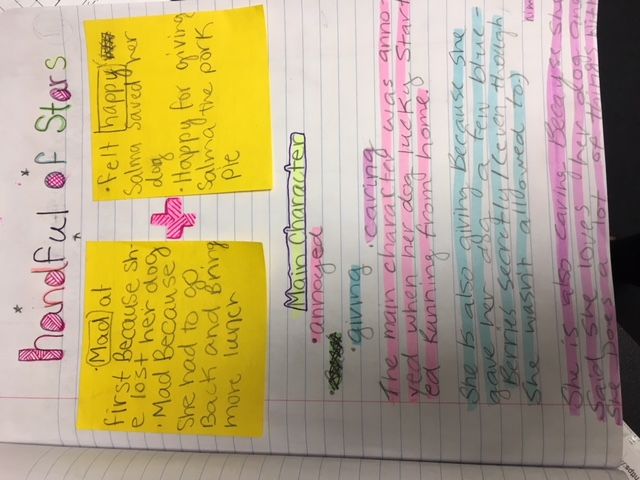 handful of Stars
• Mad at
first Because sh-
e lost her dog
• Mad Because
She had to go
Back and Bring
more lunch
+
• Felt happy
Salma saved her
dog
• Happy for giving
Salma the pork
pie
Main Character
• annoyed
• giving • caring
The main character was anno-
yed when her dog lucky Start
ed Running from home.
She Is also giving Because she
gave her dog a few blue-
Berries secretly (even though
She wasn't allowed to)
She is also caring Because she
Said she loves her dog and
She Does a lot of things